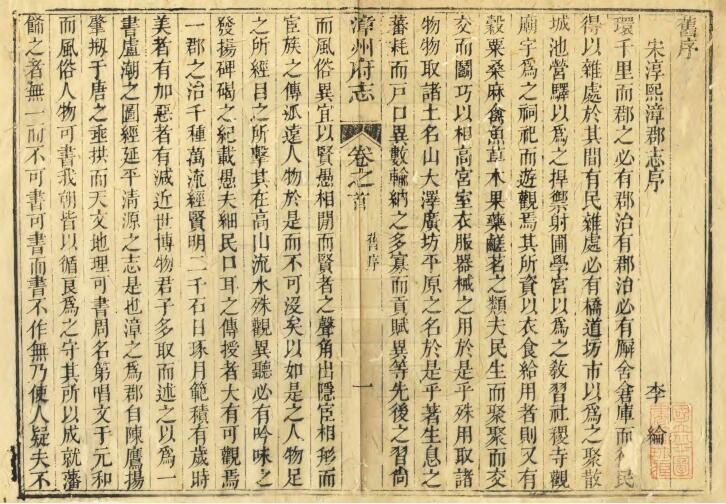 舊序
宋淳熙漳郡志序
李綸
環千里而郡之必有郡治有郡治必有廨舍倉庫而 民
得以雜處於其間有民雜處必有橋道坊市以爲之聚散
城池營驛以爲之捍禦射圃學宮以爲之教習社稷寺觀
廟宇爲之祠祀而遊觀焉其所資以衣食給用者則又有
穀粟桑麻禽魚草木果藥鹺茗之類夫民生而聚聚而交
交而鬭巧以相高宮室衣服器械之用於是乎殊用取諸
物物取諸土名山大澤廣坊平原之名於是乎著生息之
蕃耗而戸口異數輸納之多寡而貢賦異等先後之習尙
漳州府志 卷之首 舊序 一
而風俗異宜以賢愚相間而賢者之聲角出隱宦相形而
宦族之傳派遠人物於是而不可沒矣以如是之人物足
之所經目之所擊其在高山流水殊觀異聽必有吟咏之
發揚碑碣之紀載愚夫細民口耳之傳授者大有可觀焉
一郡之治千種萬流經賢明二千石日琢月範積有歲時
美者有加惡者有滅近世博物君子多取而述之以爲一
書盧潮之圖經延平清源之志是也漳之爲郡自陳鷹揚
肇剏于唐之垂拱而天文地理可書周名第唱文于元和
而風俗人物可書我朝皆以循良爲之守其所以成就藩
飾之者無一而不可書可書而書不作無乃使人疑夫不